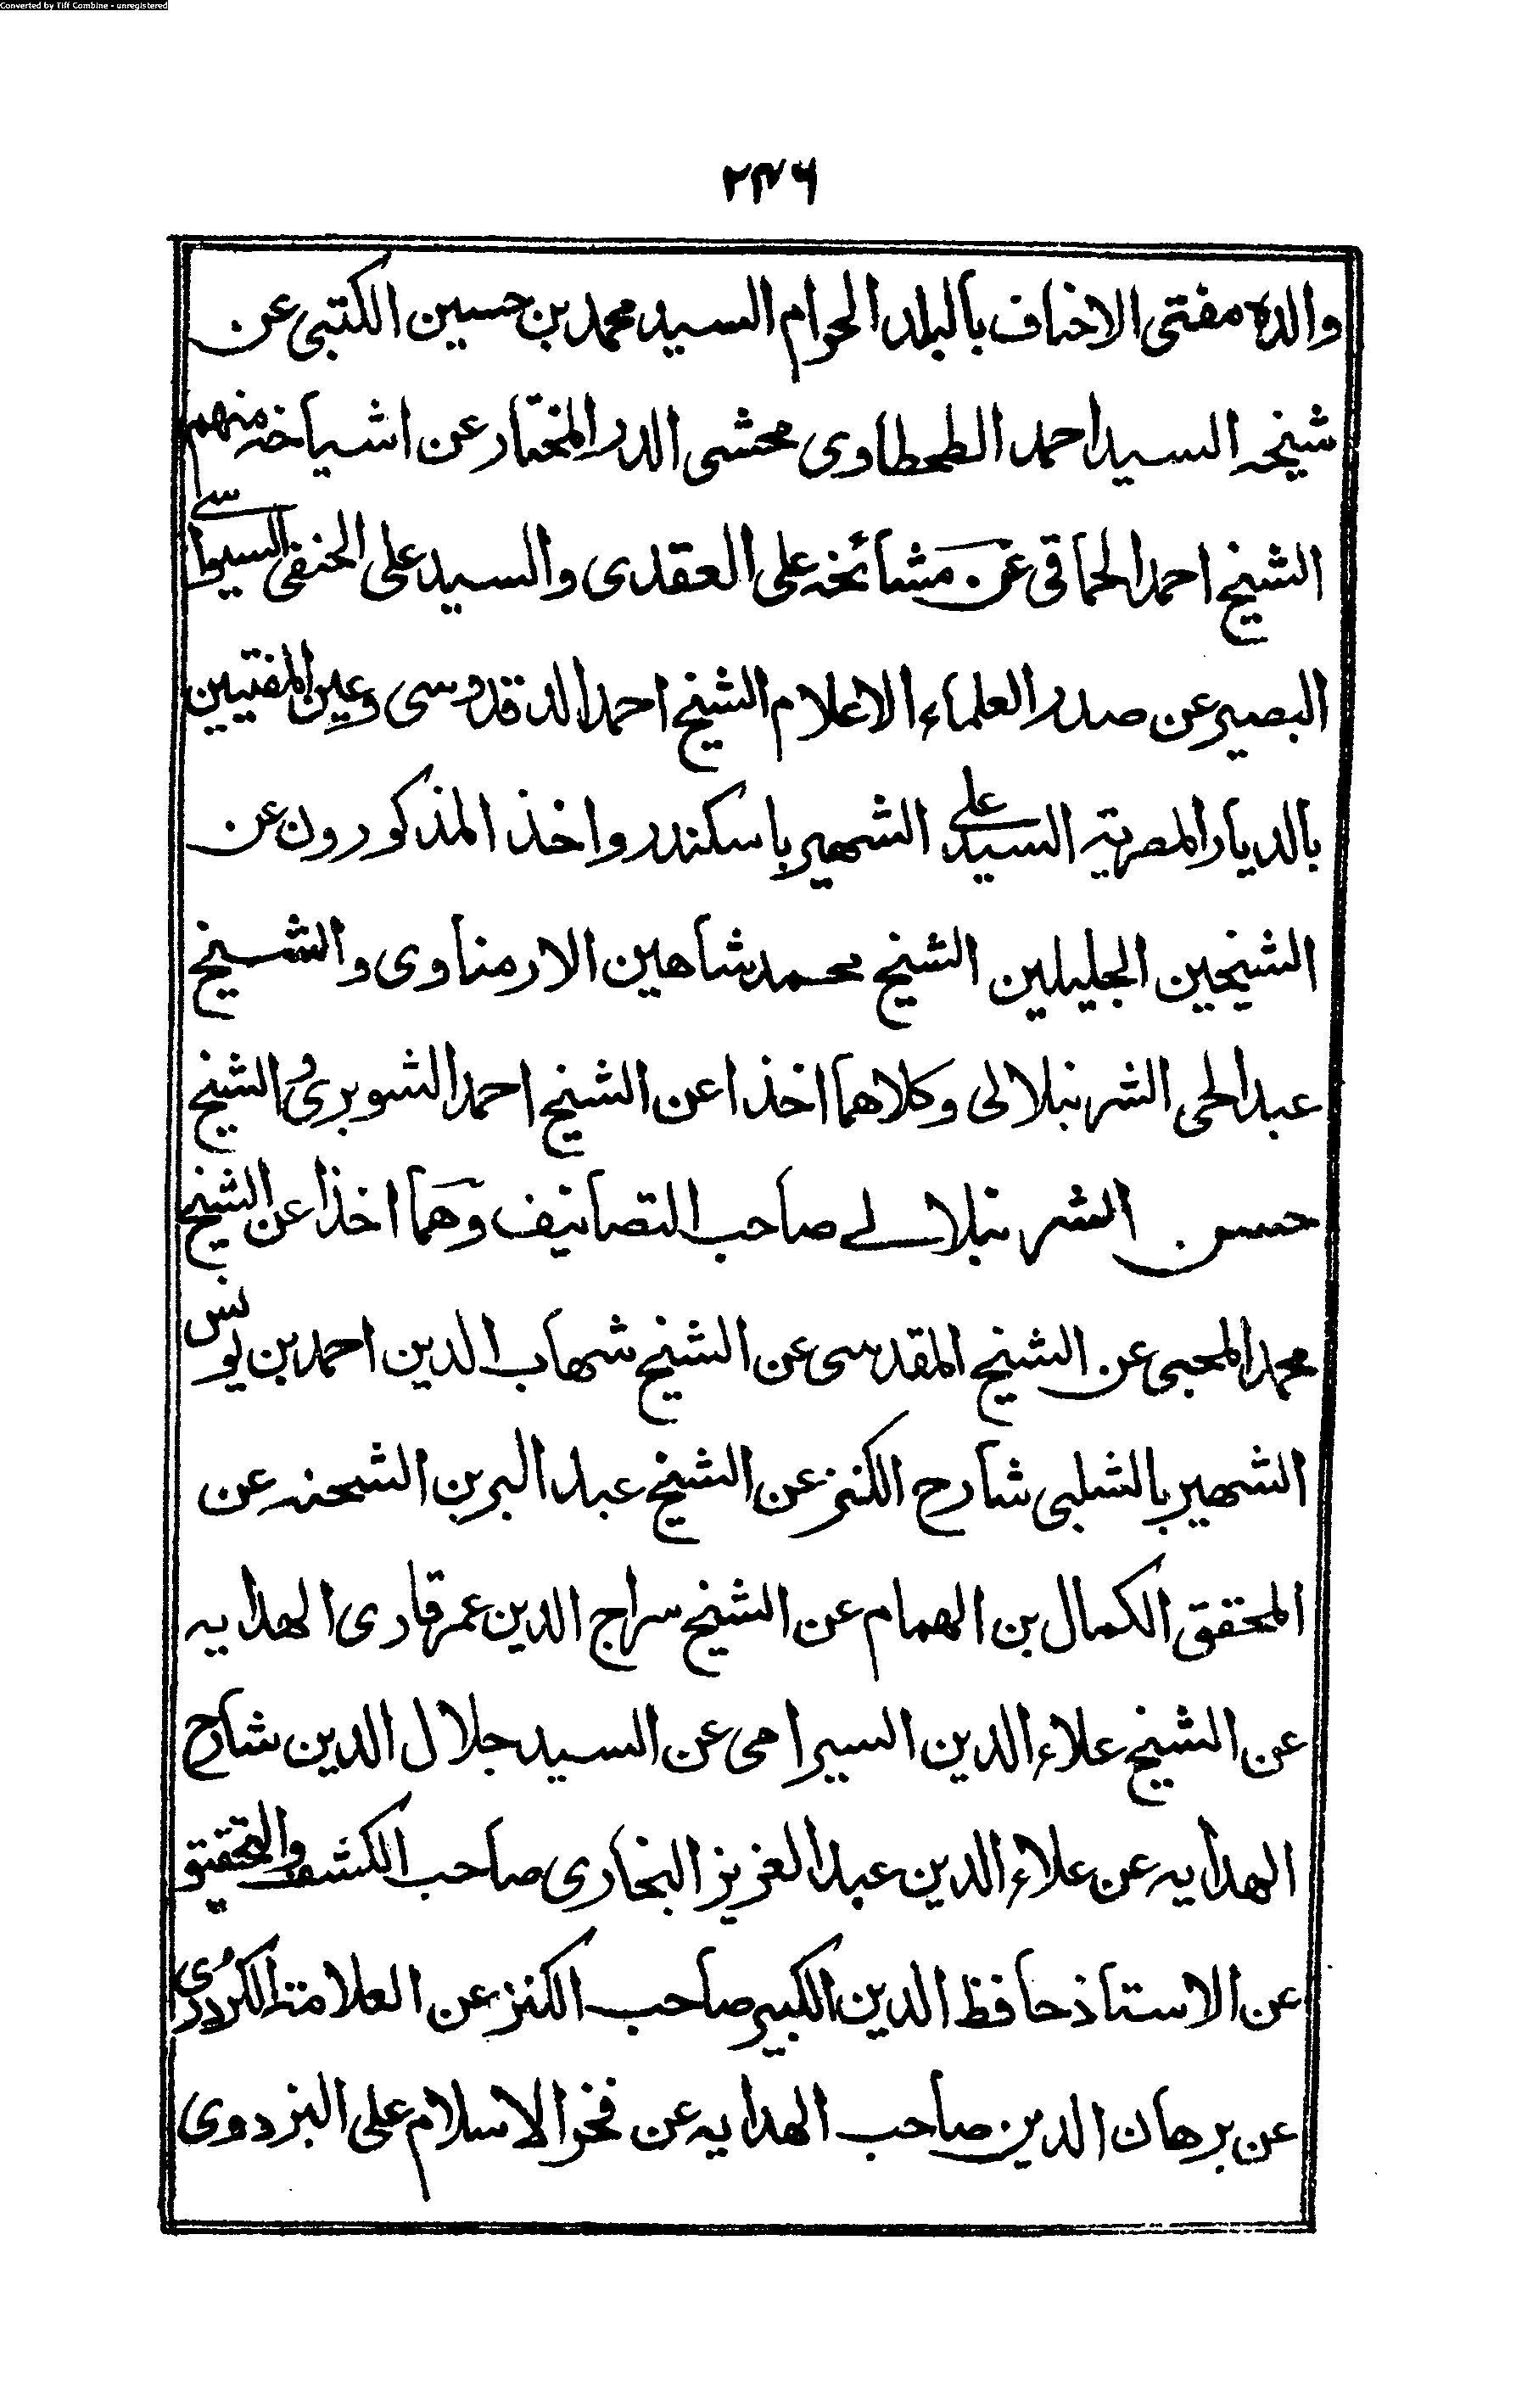 Converted by Tiff Combine - unregistered
۲۴۶
والده مفتى الاحناف بالبلد الحرام السيد محمد بن حسين الكتبى عن
شيخه السيد احمد الطحطاوى محشى الدر المختار عن اشياخه منهم
الشيخ احمد الحماقى عن مشائخه على العقدى والسيد على الحنفى السيواسے
البصير عن صدر العلماء الاعلام الشيخ احمد الدقدوسى وعين المفتيين
بالديار المصرية السيد على الشهير باسكندر واخذ المذكورون عن
الشيخين الجليلين الشيخ محمد شاهين الارمناوى والشيخ
عبد الحى الشرنبلالى وكلاهما اخذا عن الشيخ احمد الشوبرى والشيخ
حسن الشرنبلالے صاحب التصانيف وهما اخذا عن الشيخ
محمد المحبى عن الشيخ المقدسى عن الشيخ شهاب الدين احمد بن يونس
الشهير بالشلبى شارح الكنز عن الشيخ عبد البر بن الشحنه عن
المحقق الكمال بن الهمام عن الشيخ سراج الدين عمر قارى الهدايه
عن الشيخ علاء الدين السيرامى عن السيد جلال الدين شارح
الهدايه عن علاء الدين عبد العزيز البخارى صاحب الكشف والتحقيق
عن الاستاذ حافظ الدين الكبير صاحب الكنز عن العلامة الكردرى
عن برهان الدين صاحب الهدايه عن فخر الاسلام على البزدوى